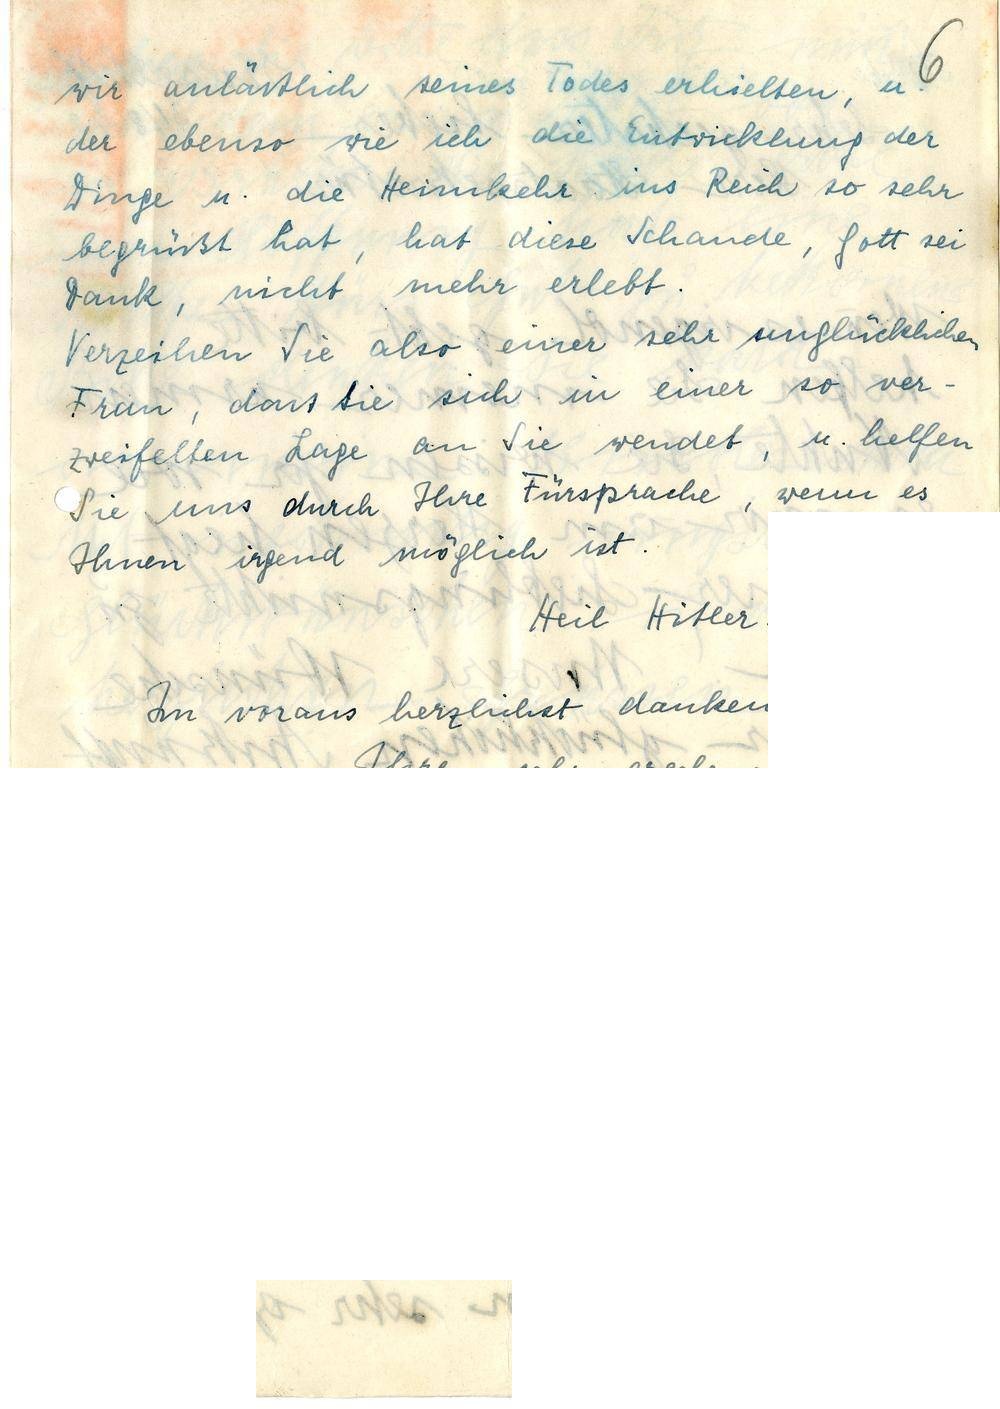 6
wir anläßlich seines Todes erhielten, u.
der ebenso wie ich die Entwicklung der
Dinge u. die Heimkehr ins Reich so sehr
begrüßt hat, hat diese Schande, Gott sei
Dank, nicht mehr erlebt.
Verzeihen Sie also einer sehr unglücklichen
Frau, dass sie sich in einer so ver-
zweifelten Lage an Sie wendet, u. helfen
Sie uns durch Ihre Fürsprache, wenn es
Ihnen irgend möglich ist.
Heil Hitler
Im voraus herzlichst danken